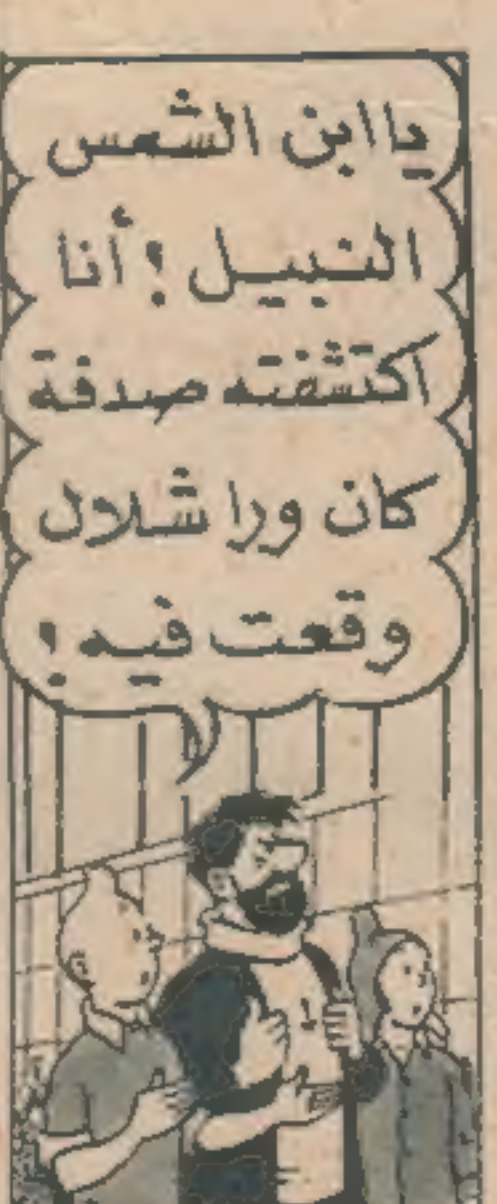 يا ابن الشمس
النبيل ! أنا
اكتشفته صدفة
كان ورا شلال
وقعت فيه !